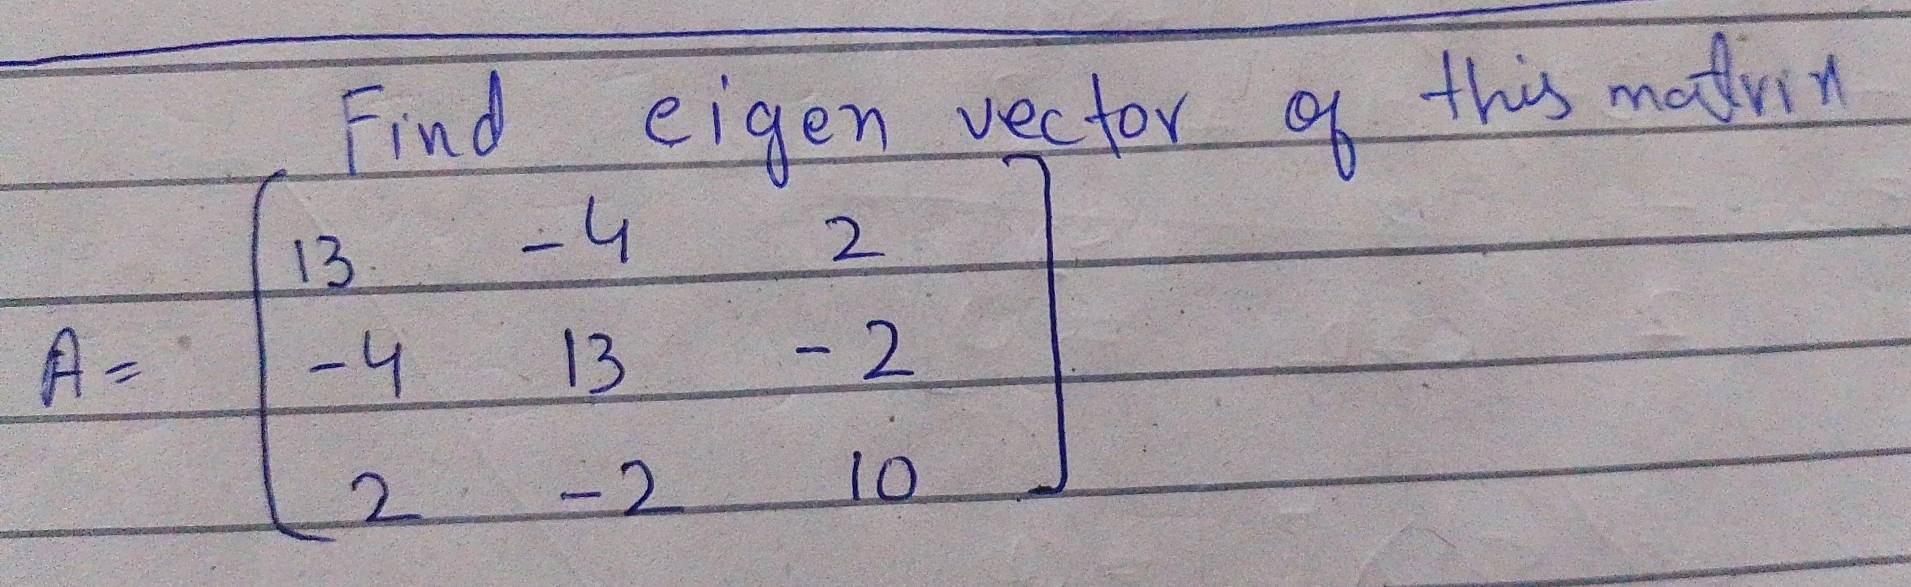 Find eigen vector of this matrix
13 -4 2
A= -4 13 -2
2 -2 10